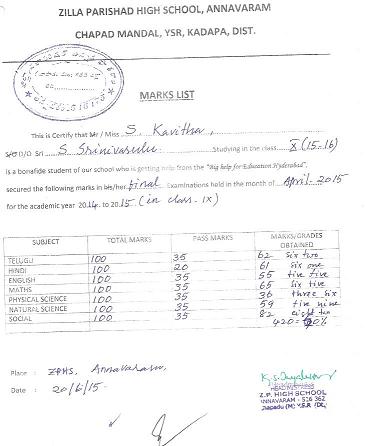 ZILLA PARISHAD HIGH SCHOOL, ANNAVARAM
CHAPAD MANDAL, YSR, KADAPA, DIST.
MARKS LIST
This is Certify that Mr / Miss S. Kavitha,
S/O D/O Sri S Srinivasulu Studying in the class X (15-16)
is a bonafide student of our school who is getting help from the "Big help for Education Hyderabad",
secured the following marks in his/her final Examinations held in the month of April 2015
for the academic year 2014 to 2015 (in class. IX)
SUBJECT TOTAL MARKS PASS MARKS MARKS/GRADES OBTAINED
TELUGU 100 35 62 six two
HINDI 100 20 61 six one
ENGLISH 100 35 55 five five
MATHS 100 35 65 six five
PHYSICAL SCIENCE 100 35 36 three six
NATURAL SCIENCE 100 35 59 five nine
SOCIAL 100 35 82 eight two
420 = 60%
Place : ZPHS, Annavaram
Date : 20/6/15
HEADMISTRESS
Z.P. HIGH SCHOOL
ANNAVARAM - 516 362
Chapadu (M) Y.S.R (Dt)